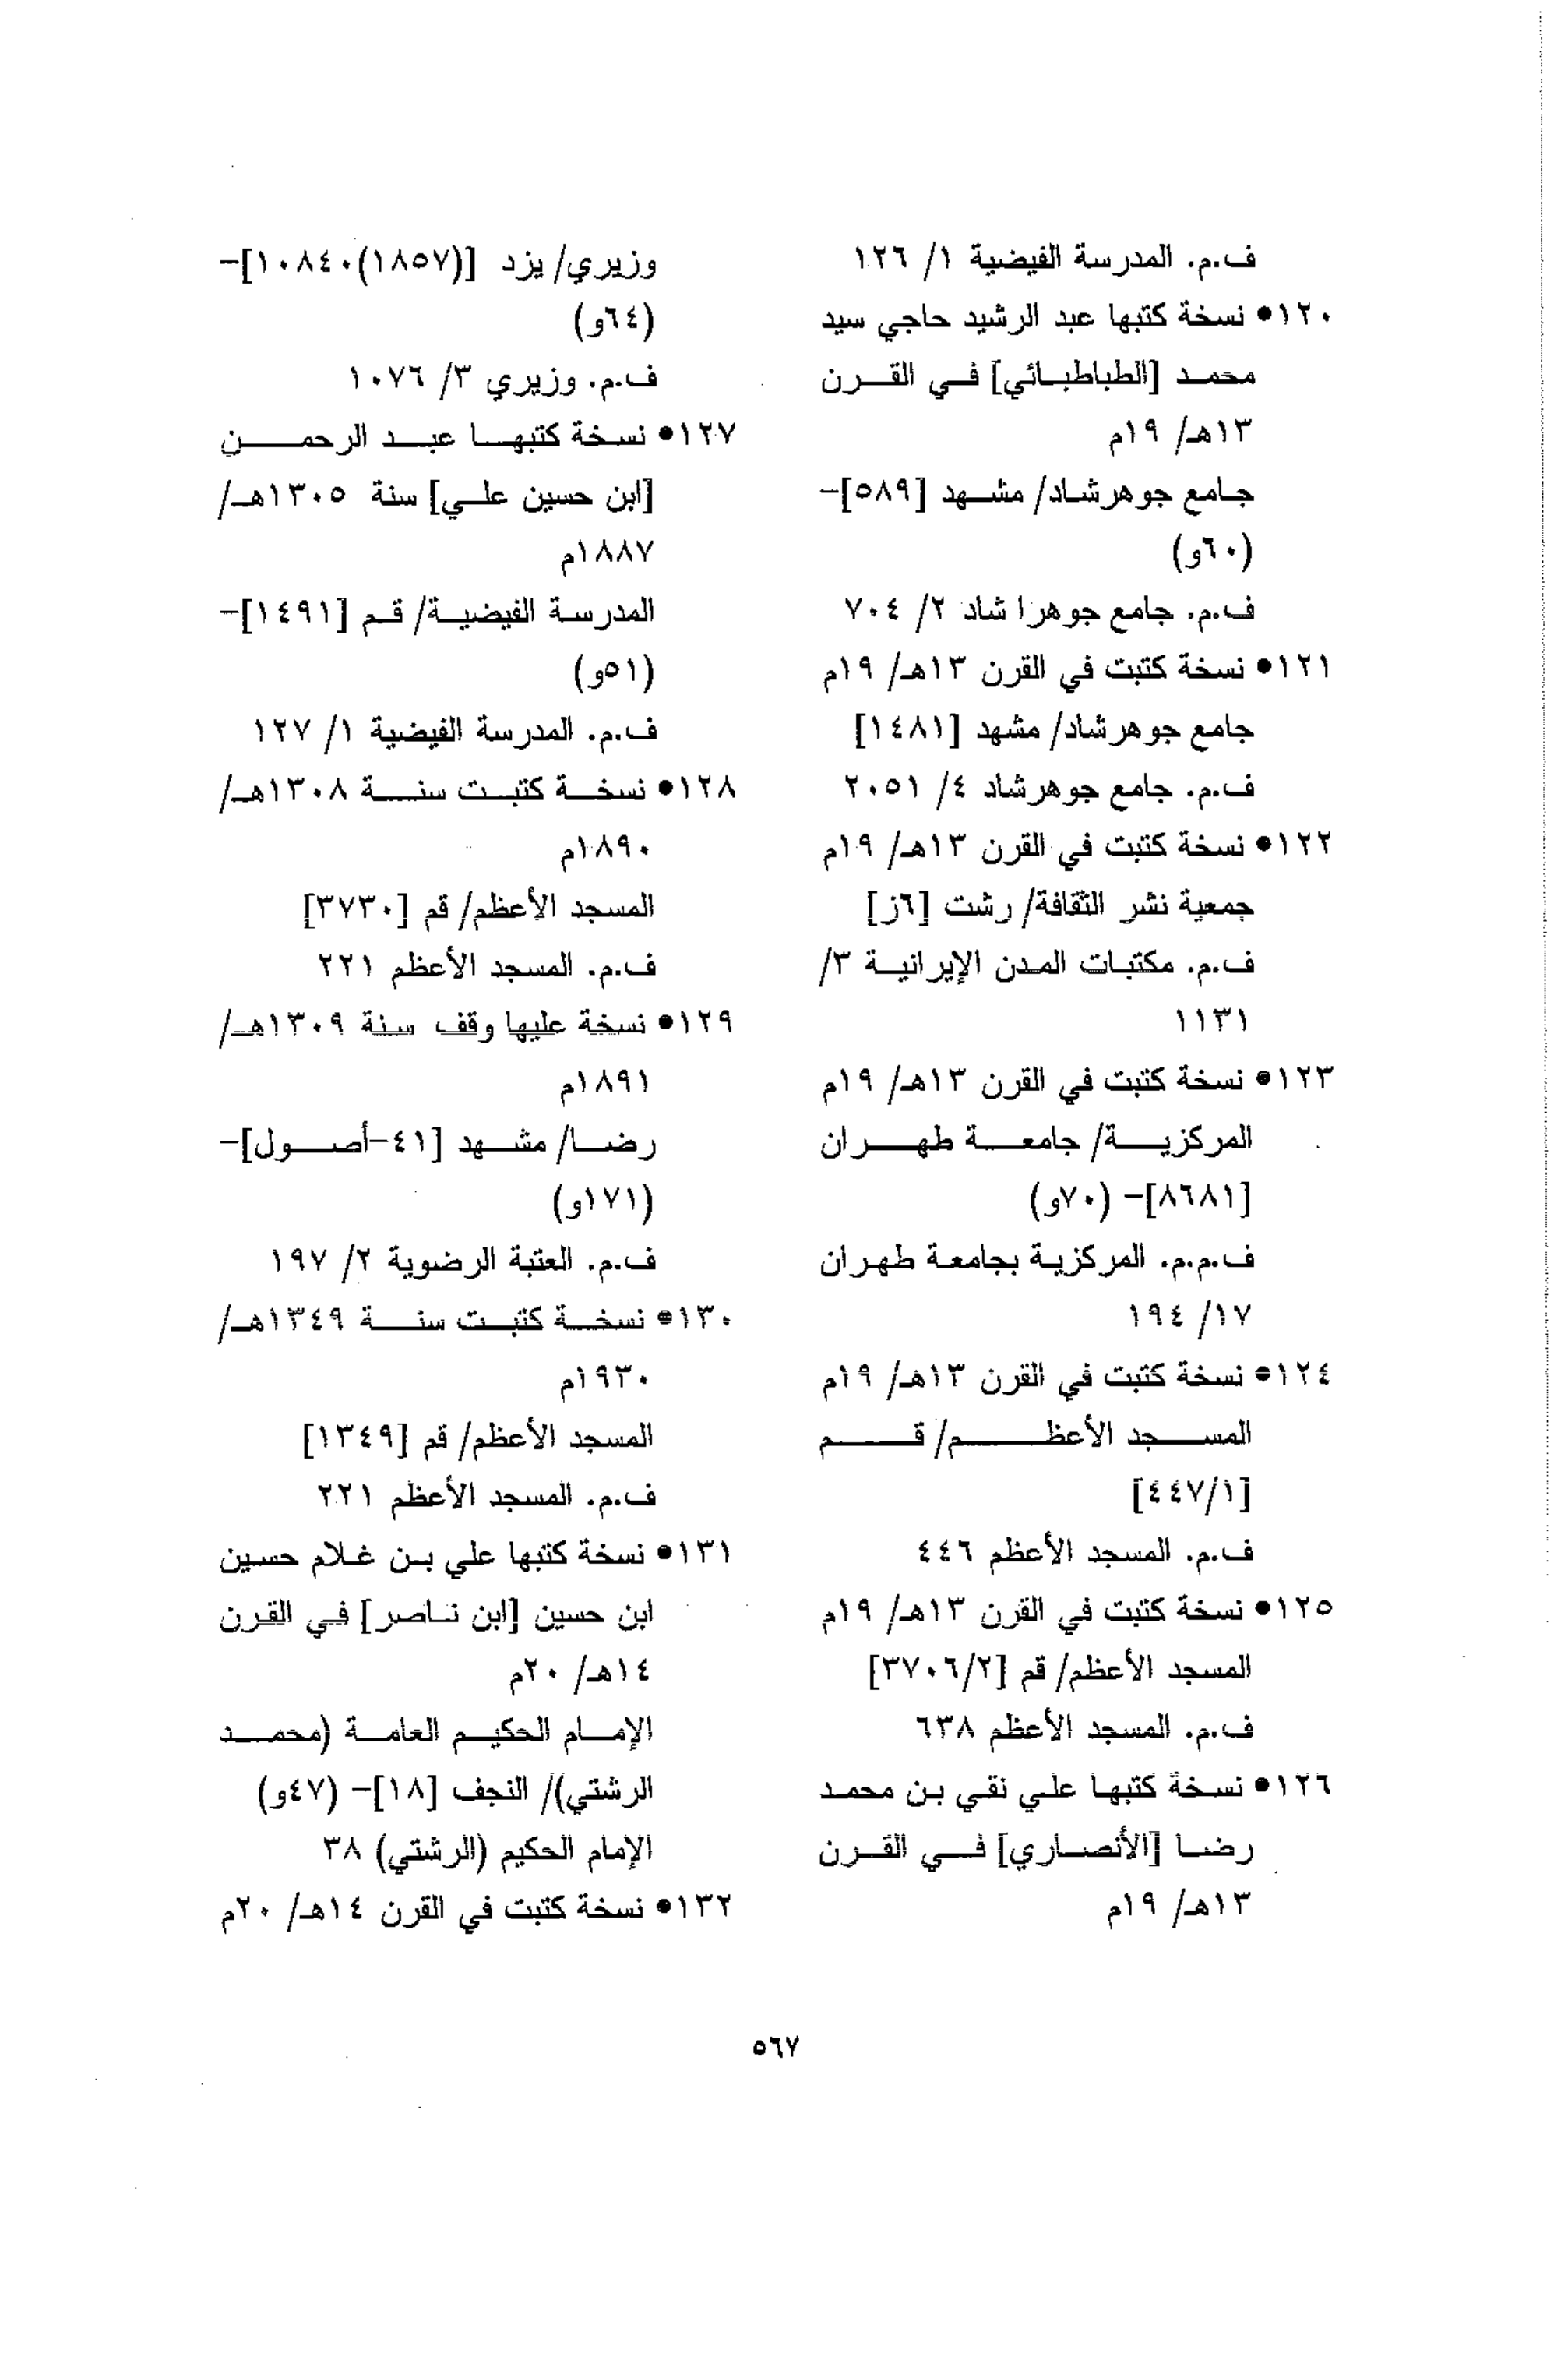 ف.م. المدرسة الفيضية ١/ ١٢٦
١٢٠• نسخة كتبها عبد الرشيد حاجي سيد
محمد [الطباطبائي] في القرن
١٣هـ/ ١٩م
جامع جوهرشاد/ مشهد [٥٨٩]-
(٦٠و)
ف.م. جامع جوهرا شاد ٢/ ٧٠٤
١٢١• نسخة كتبت في القرن ١٣هـ/ ١٩م
جامع جوهرشاد/ مشهد [١٤٨١]
ف.م. جامع جوهرشاد ٤/ ٢٠٥١
١٢٢• نسخة كتبت في القرن ١٣هـ/ ١٩م
جمعية نشر الثقافة/ رشت [٦ز]
ف.م. مكتبات المدن الإيرانية ٣/
١١٣١
١٢٣• نسخة كتبت في القرن ١٣هـ/ ١٩م
المركزية/ جامعة طهران
[٨٦٨١]- (٧٠و)
ف.م.م. المركزية بجامعة طهران
١٧/ ١٩٤
١٢٤• نسخة كتبت في القرن ١٣هـ/ ١٩م
المسجد الأعظم/ قم
[٤٤٧/١]
ف.م. المسجد الأعظم ٤٤٦
١٢٥• نسخة كتبت في القرن ١٣هـ/ ١٩م
المسجد الأعظم/ قم [٣٧٠٦/٢]
ف.م. المسجد الأعظم ٦٣٨
١٢٦• نسخة كتبها علي نقي بن محمد
رضا [الأنصاري] في القرن
١٣هـ/ ١٩م
وزيري/ يزد [(١٨٥٧)١٠٨٤٠]-
(٦٤و)
ف.م. وزيري ٣/ ١٠٧٦
١٢٧• نسخة كتبها عبد الرحمن
[ابن حسين علي] سنة ١٣٠٥هـ/
١٨٨٧م
المدرسة الفيضية/ قم [١٤٩١]-
(٥١و)
ف.م. المدرسة الفيضية ١/ ١٢٧
١٢٨• نسخة كتبت سنة ١٣٠٨هـ/
١٨٩٠م
المسجد الأعظم/ قم [٣٧٣٠]
ف.م. المسجد الأعظم ٢٢١
١٢٩• نسخة عليها وقف سنة ١٣٠٩هـ/
١٨٩١م
رضا/ مشهد [٤١-أصول]-
(١٧١و)
ف.م. العتبة الرضوية ٢/ ١٩٧
١٣٠• نسخة كتبت سنة ١٣٤٩هـ/
١٩٣٠م
المسجد الأعظم/ قم [١٣٤٩]
ف.م. المسجد الأعظم ٢٢١
١٣١• نسخة كتبها علي بن غلام حسين
ابن حسين [ابن ناصر] في القرن
١٤هـ/ ٢٠م
الإمام الحكيم العامة (محمد
الرشتي)/ النجف [١٨]- (٤٧و)
الإمام الحكيم (الرشتي) ٣٨
١٣٢• نسخة كتبت في القرن ١٤هـ/ ٢٠م
٥٦٧